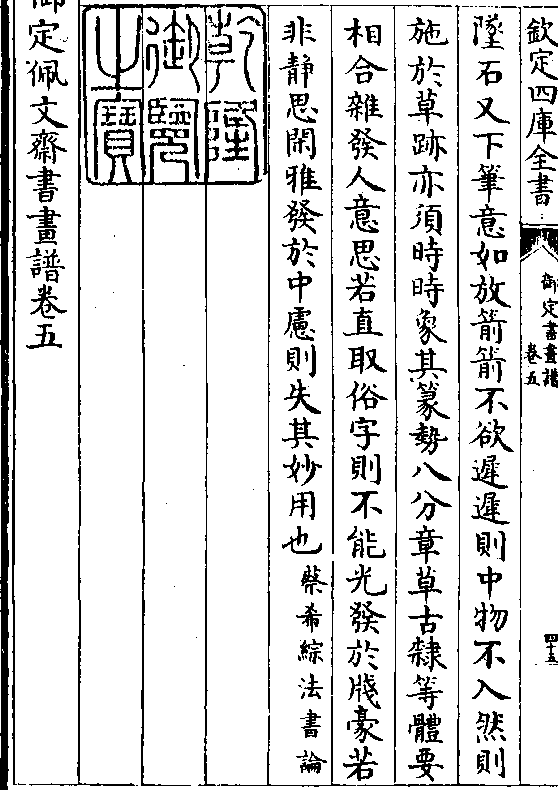 欽定四庫全書
御定書畫譜
卷五
四十五
墜石又下筆意如放箭箭不欲遲遲則中物不入然則
施於草跡亦須時時象其篆勢八分章草古隸等體要
相合雜發人意思若直取俗字則不能光發於牋豪若
非静思閑雅發於中慮則失其妙用也蔡希綜法書論
乾隆
御覽
之寶
御定佩文齋書畫譜卷五